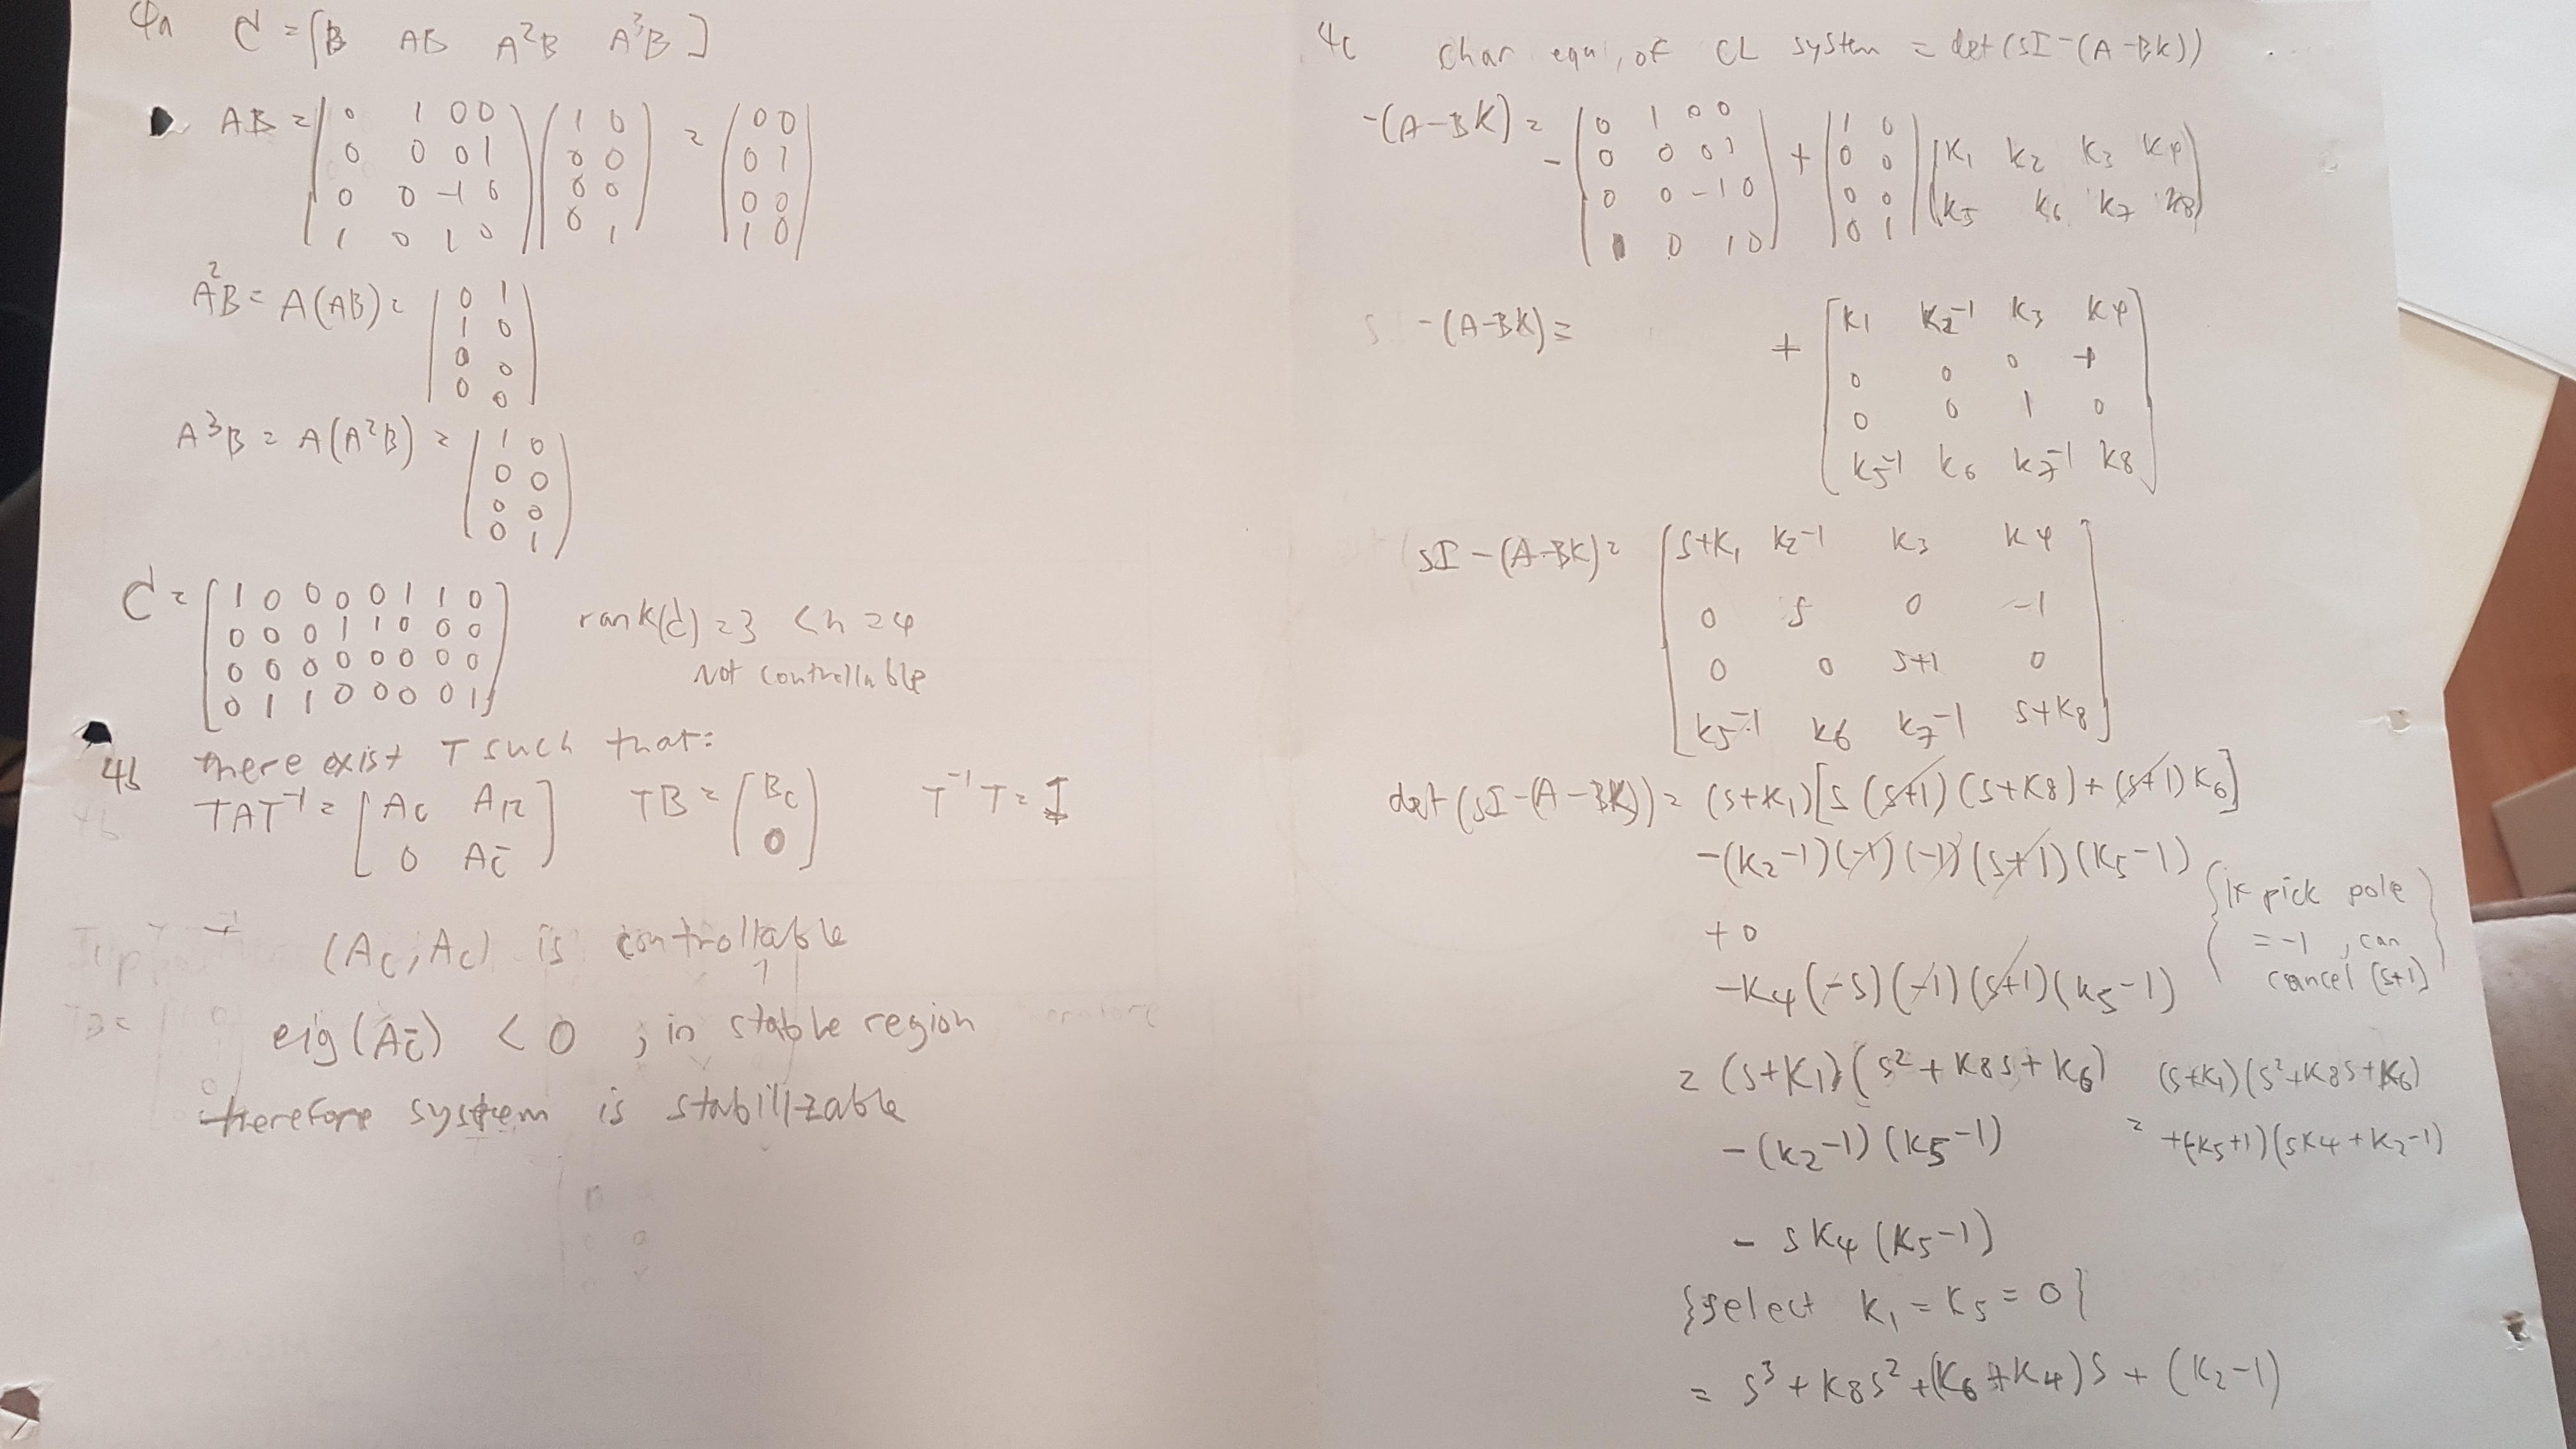 4a C = [B AB A²B A³B]
AB = ( 0 1 0 0 ) ( 1 0 ) = ( 0 0 )
( 0 0 0 1 ) ( 0 0 ) ( 0 1 )
( 0 0 -1 0 ) ( 0 0 ) ( 0 0 )
( 1 0 1 0 ) ( 0 1 ) ( 1 0 )
A²B = A(AB) = ( 0 1 )
( 1 0 )
( 0 0 )
( 0 0 )
A³B = A(A²B) = ( 1 0 )
( 0 0 )
( 0 0 )
( 0 1 )
C = [ 1 0 0 0 0 1 1 0 ]
[ 0 0 0 1 1 0 0 0 ] rank(C) = 3 < n = 4
[ 0 0 0 0 0 0 0 0 ] Not controllable
[ 0 1 1 0 0 0 0 1 ]
4b there exist T such that:
TAT⁻¹ = [ Ac A12 ] TB = ( Bc ) T⁻¹T = I
[ 0 Ac̄ ] ( 0 )
(Ac, Ac) is controllable
eig(Ac̄) < 0 , in stable region
therefore system is stabilizable
4c char equi, of CL system = det(sI-(A-BK))
-(A-BK) = - [ 0 1 0 0 ] + [ 1 0 ] [ K1 K2 K3 K4 ]
[ 0 0 0 1 ] [ 0 0 ] [ K5 K6 K7 K8 ]
[ 0 0 -1 0 ] [ 0 0 ]
[ 1 0 1 0 ] [ 0 1 ]
-(A-BK) = + [ K1 K2-1 K3 K4 ]
[ 0 0 0 -1 ]
[ 0 0 1 0 ]
[ K5-1 K6 K7-1 K8 ]
sI-(A-BK) = [ s+K1 K2-1 K3 K4 ]
[ 0 s 0 -1 ]
[ 0 0 s+1 0 ]
[ K5-1 K6 K7-1 s+K8 ]
det(sI-(A-BK)) = (s+K1)[s(s+1)(s+K8)+(s+1)K6]
-(K2-1)(-1)(-1)(s+1)(K5-1)
+0
-K4(-s)(-1)(s+1)(K5-1)
{if pick pole
= -1 , can
cancel (s+1)}
= (s+K1)(s²+K8s+K6)
-(K2-1)(K5-1)
- sK4(K5-1)
(s+K1)(s²+K8s+K6)
= +(-K5+1)(sK4+K2-1)
{select K1 = K5 = 0}
= s³+K8s²+(K6+K4)s+(K2-1)